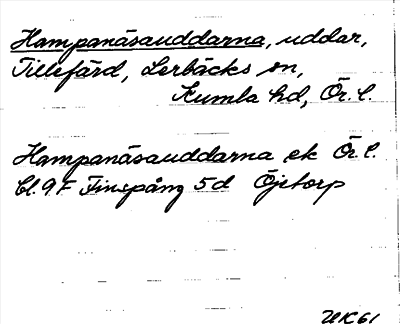 Hampanäsauddarna, uddar,
Tillefärd, Lerbäcks sn,
Kumla hd, Ör. l.
Hampanäsauddarna ek Ör. l.
bl. 9 F Finspång 5 d Öjetorp
UK 61